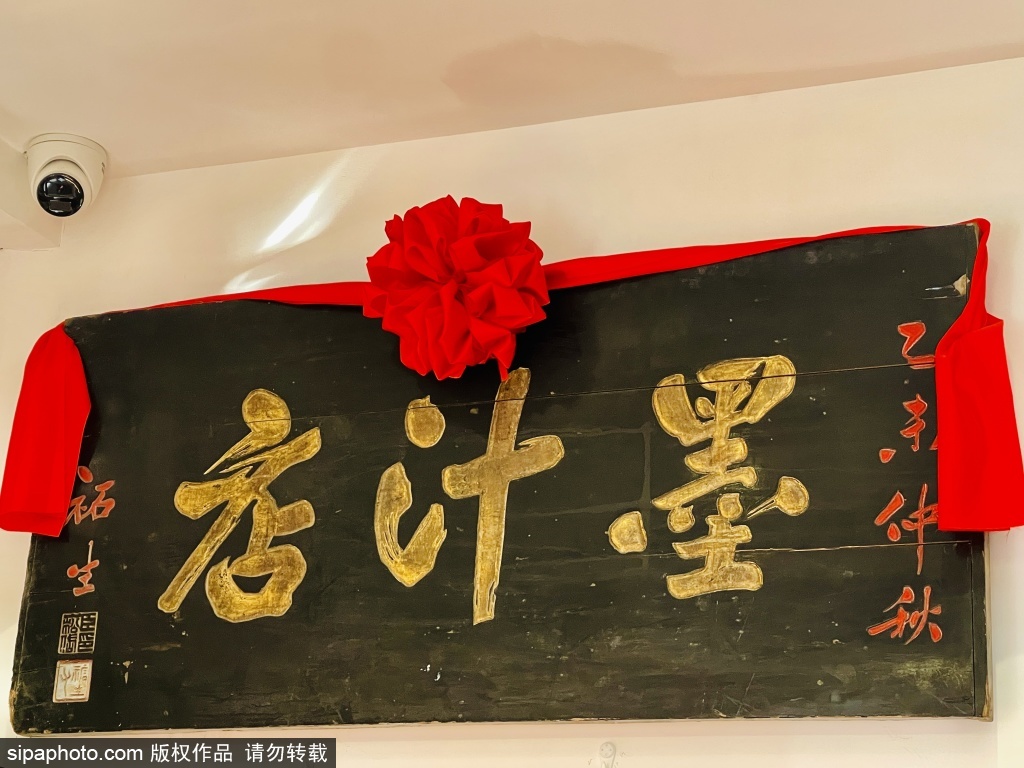 乙未仲秋
墨汁店
祐生
sipaphoto.com 版权作品 请勿转载